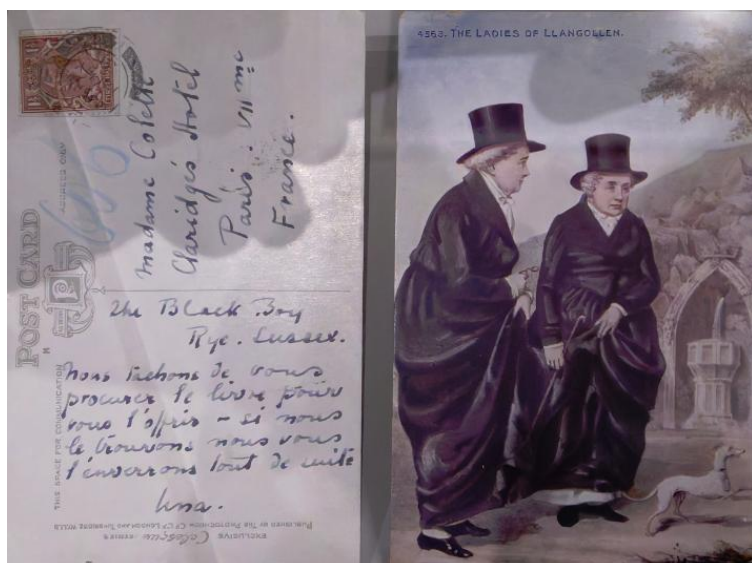 POST CARD
ADDRESS ONLY
THIS SPACE FOR COMMUNICATION
Madame Colette
Claridge's Hotel
Paris. VIII me
France.
The Black Boy
Rye. Sussex.
nous tachons de vous
procurer le livre pour
vous l'offrir - si nous
le trouvons nous vous
l'enverrons tout de suite
Una.
EXCLUSIVE Celesque SERIES
PUBLISHED BY THE PHOTOCHROM CO. LTD. LONDON AND TUNBRIDGE WELLS
4363. THE LADIES OF LLANGOLLEN.